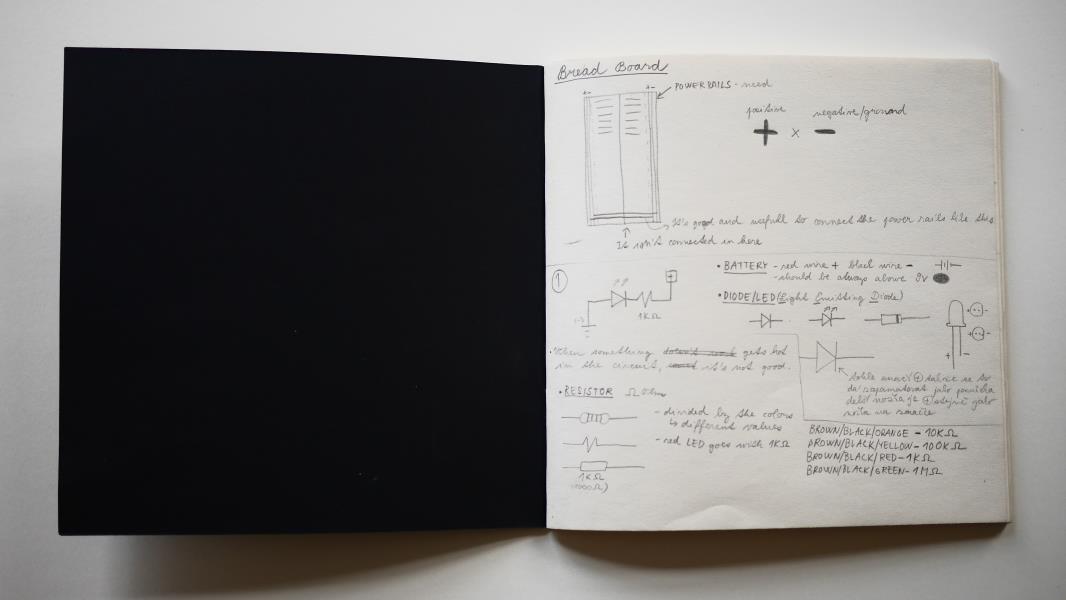 Bread Board
+ - + -
POWER RAILS - need
positive negative/ground
+ x -
It's good and usefull to connect the power rails like this
It isn't connected in here
1
+
1KΩ
(-)
• BATTERY - red wire + black wire -
- should be always above 9V
• DIODE/LED (Light Emitting Diode)
+ -
• When something doesn't work gets hot
in the circuit, it's not good.
• RESISTOR Ω Ohms
- divided by the colors
↳ different values
- red LED goes with 1KΩ
1KΩ
(1000Ω)
tohle značí + takže se to
dá zapamatovat jako písmeno
delší nožka je + stejně jako
BROWN/BLACK/ORANGE - 10KΩ
BROWN/BLACK/YELLOW - 100KΩ
BROWN/BLACK/RED - 1KΩ
BROWN/BLACK/GREEN - 1MΩ